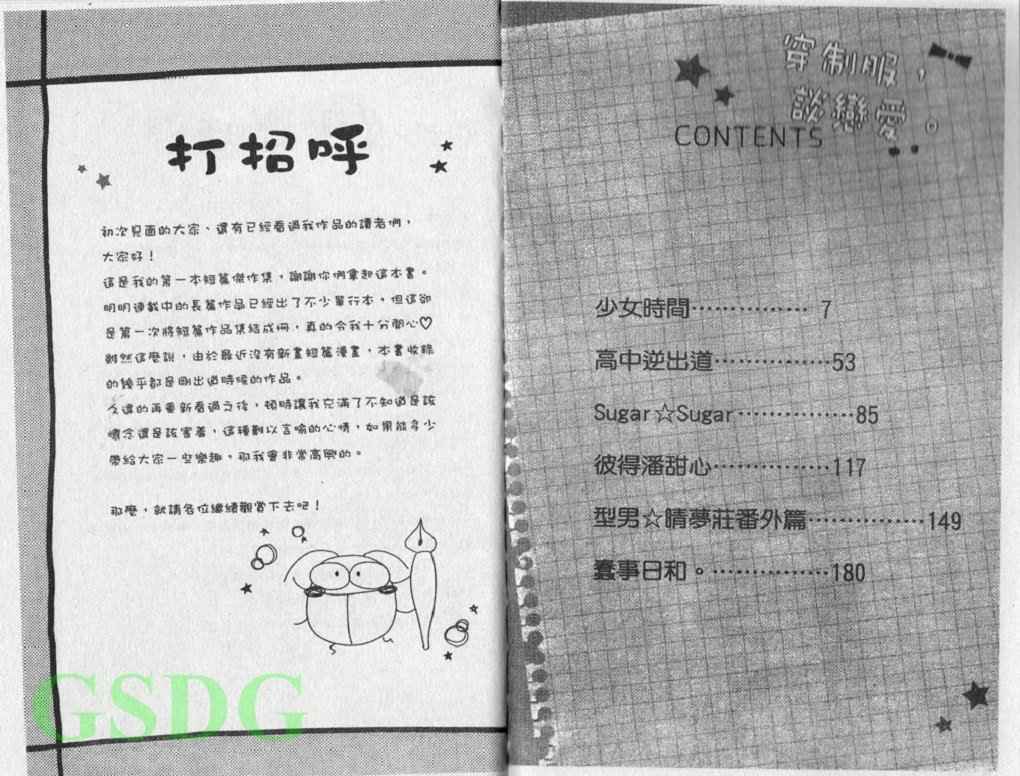 打招呼
初次見面的大家、還有已經看過我作品的讀者們，
大家好！
這是我的第一本短篇傑作集，謝謝你們拿起這本書。
明明連載中的長篇作品已經出了不少單行本，但這卻
是第一次將短篇作品集結成冊，真的令我十分開心♡
雖然這麼說，由於最近沒有新畫短篇漫畫，本書收錄
的幾乎都是剛出道時候的作品。
久違的再重新看過之後，頓時讓我充滿了不知道是該
懷念還是該害羞，這種難以言喻的心情，如果能多少
帶給大家一些樂趣，那我會非常高興的。
那麼，就請各位繼續觀賞下去吧！
GSDG
穿制服，
談戀愛。
CONTENTS
少女時間……………… 7
高中逆出道……………53
Sugar☆Sugar……………85
彼得潘甜心……………117
型男☆晴夢莊番外篇……………149
蠢事日和。……………180